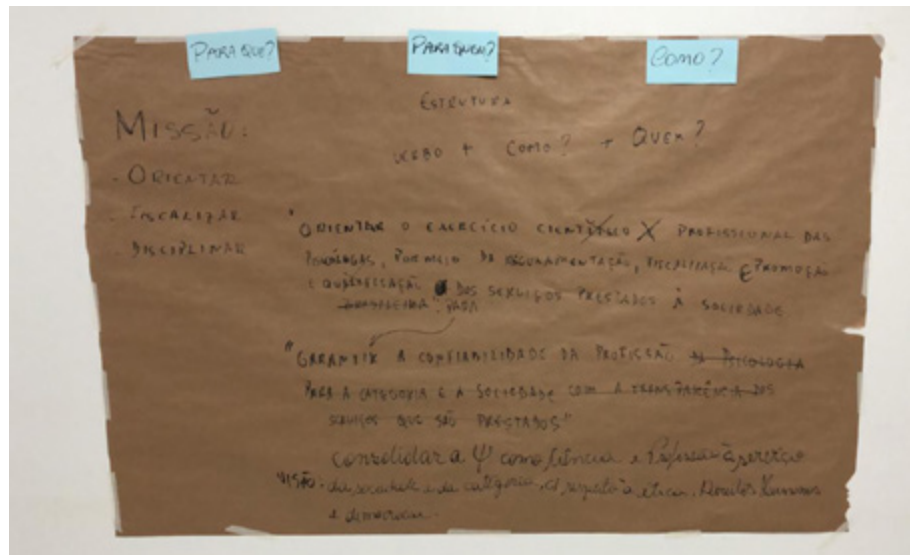 PARA QUE?
PARA QUEM?
COMO?
ESTRUTURA
MISSÃO:
VERBO + COMO? + QUEM?
- ORIENTAR
- FISCALIZAR
- DISCIPLINAR
"ORIENTAR O EXERCÍCIO CIENTÍFICO X PROFISSIONAL DAS
PSICÓLOGAS, POR MEIO DA REGULAMENTAÇÃO, FISCALIZAÇÃO E PROMOÇÃO
E QUALIFICAÇÃO DOS SERVIÇOS PRESTADOS À SOCIEDADE
BRASILEIRA". PARA
"GARANTIR A CONFIABILIDADE DA PROFISSÃO DA PSICOLOGIA
PARA A CATEGORIA E A SOCIEDADE COM A TRANSPARÊNCIA DOS
SERVIÇOS QUE SÃO PRESTADOS"
consolidar a Ψ como ciência e Profissão à
VISÃO: da sociedade e da categoria, c/ respeito à ética, Direitos Humanos
e democracia.